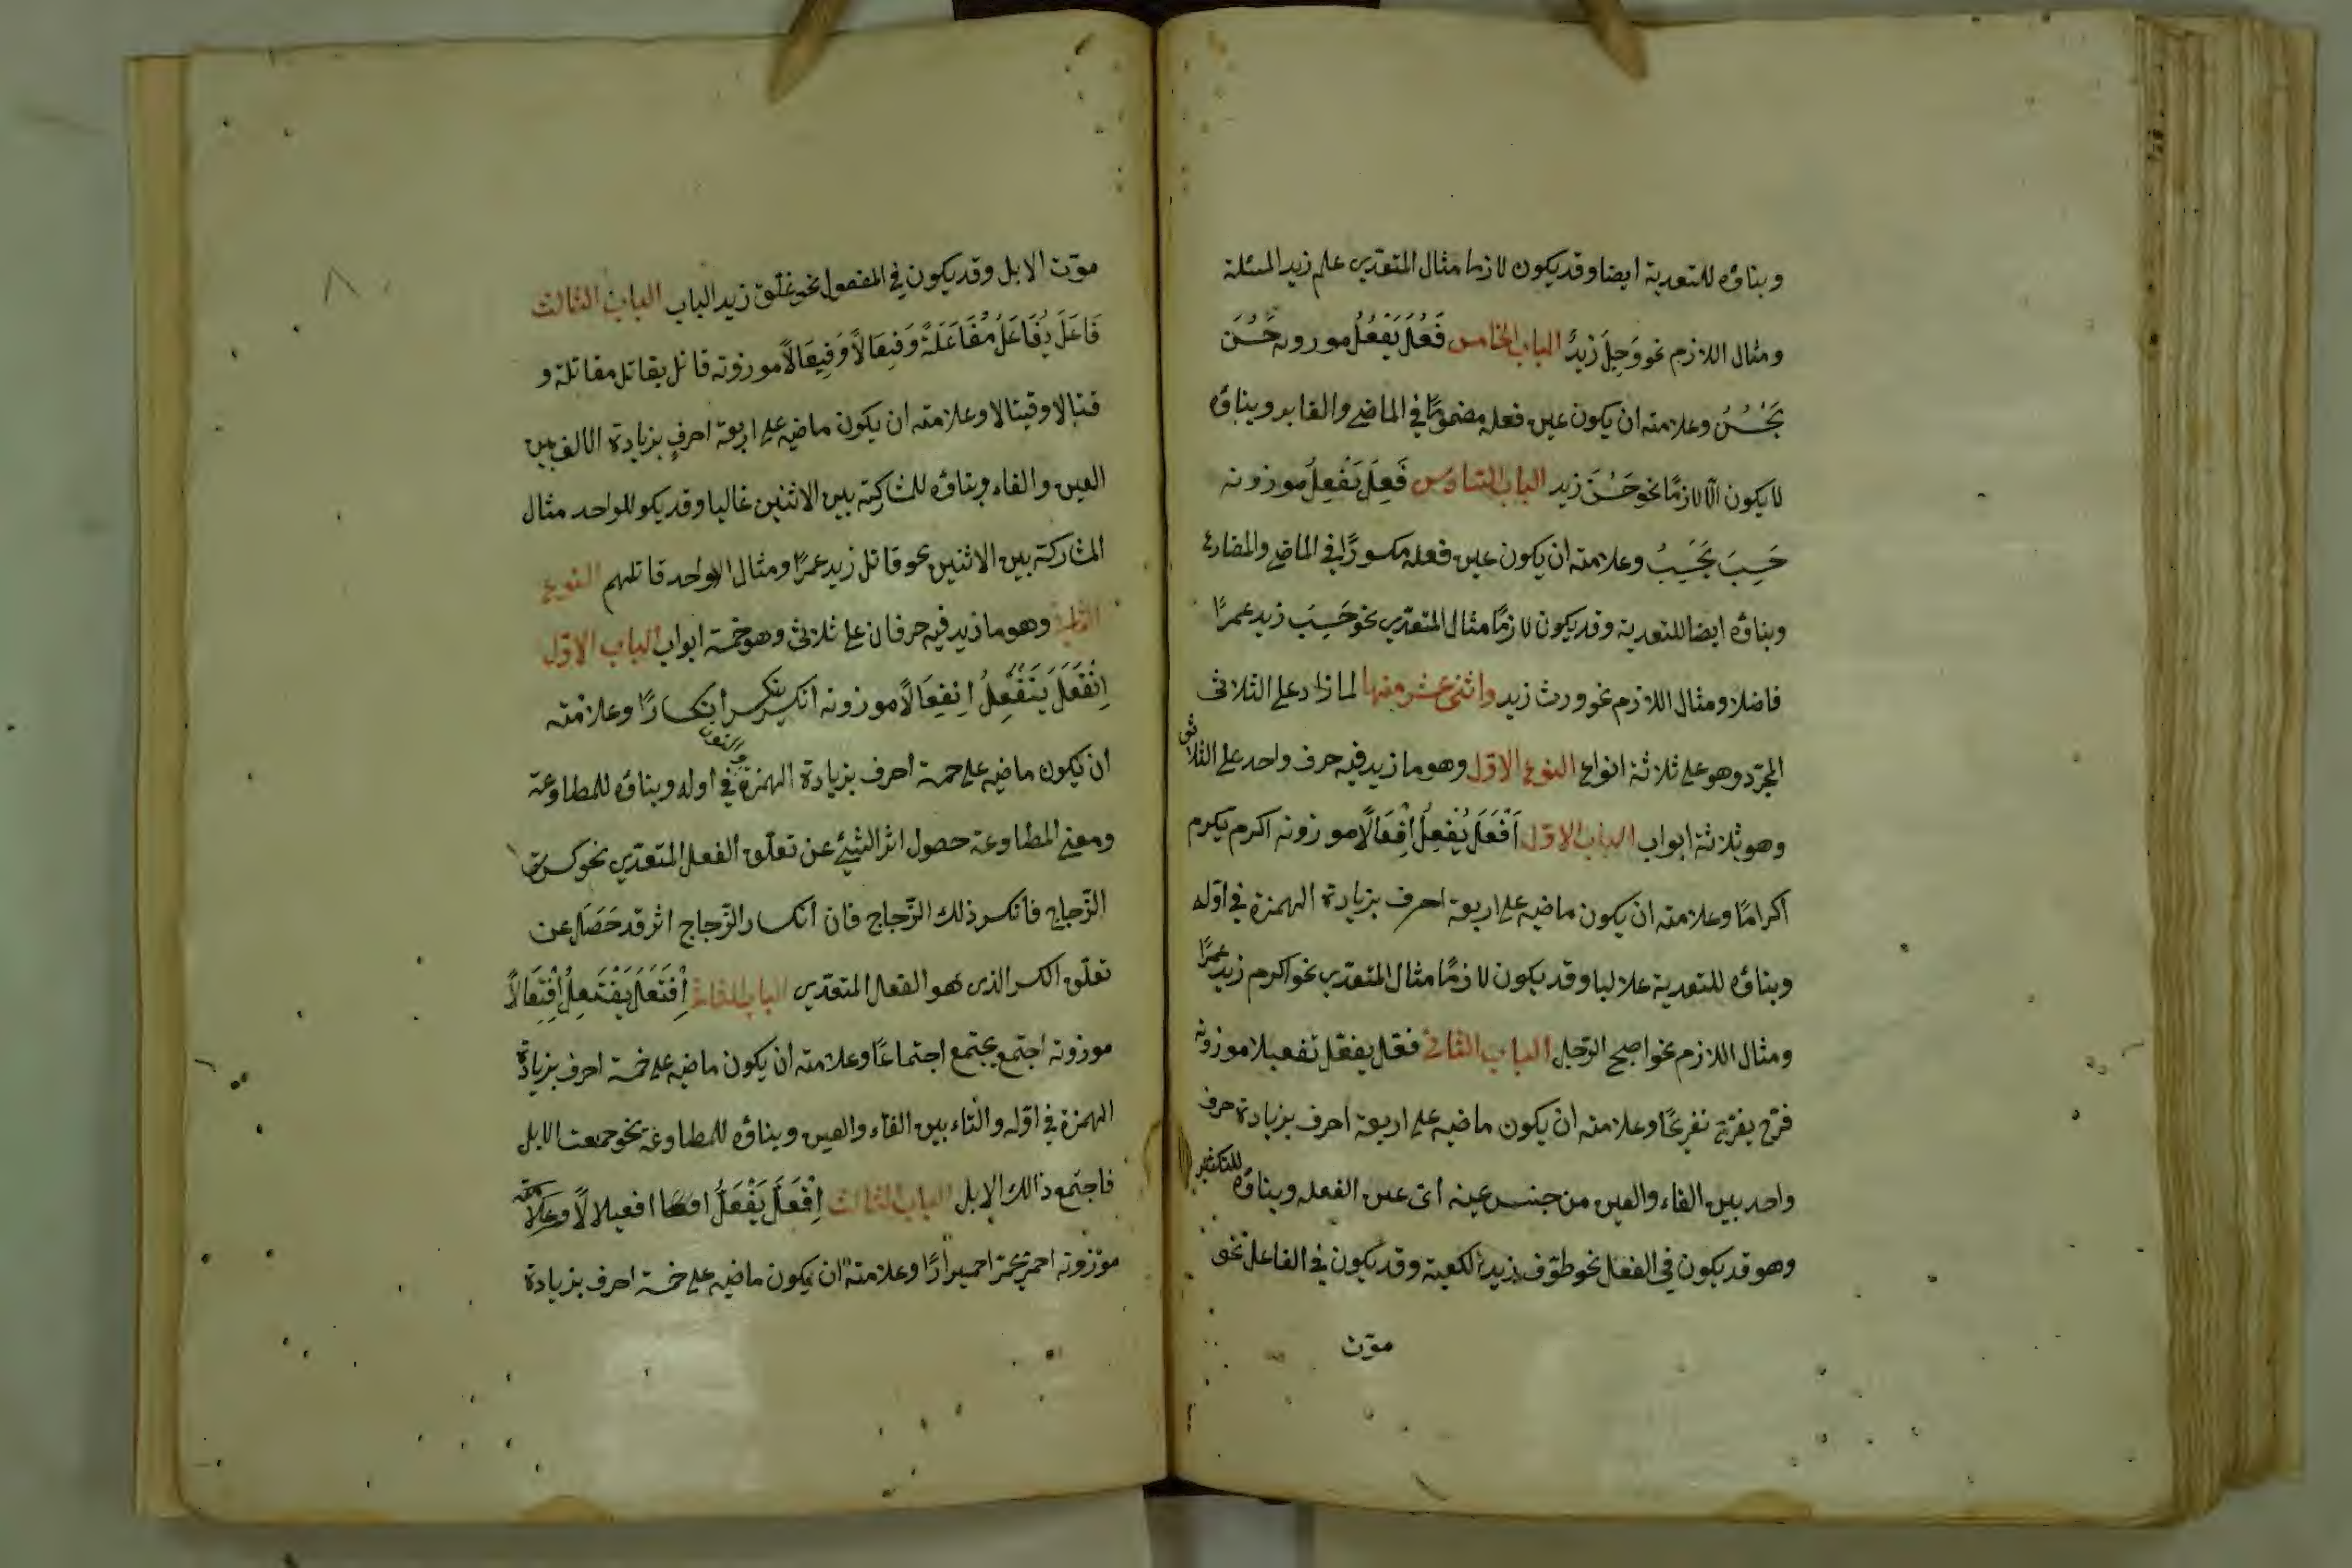 وبناؤه للتعدية ايضا وقد يكون لازما مثال المتعدّى علم زيد المسئلة
ومثال اللازم نحو وَجِلَ زيدٌ الباب الخامس فَعُلَ يَفْعُلُ موزونه حَسُنَ
يَحْسُنُ وعلامته ان يكون عين فعله مضمومًا في الماضى والغابر وبناؤه
لا يكون الّا لازمًا نحو حَسُنَ زيد الباب السّادس فَعِلَ يَفْعِلُ موزونه
حَسِبَ يَحْسِبُ وعلامته ان يكون عين فعله مكسورًا في الماضى والمضارع
وبناؤه ايضا للتعدية وقد يكون لازمًا مثال المتعدّى نحو حَسِبَ زيد عمرًا
فاضلا ومثال اللازم نحو ورث زيد واثنى عشر منها لما زاد على الثلاثى
المجرّد وهو على ثلاثة انواع النوع الاوّل وهو ما زيد فيه حرف واحد على الثلاثى
وهو ثلاثة ابواب الباب الاوّل اَفْعَلَ يُفْعِلُ اِفْعَالًا موزونه اكرم يكرم
اكرامًا وعلامته ان يكون ماضيه على اربعة احرف بزيادة الهمزة في اوّله
وبناؤه للتعدية غالبا وقد يكون لازمًا مثال المتعدّى نحو اكرم زيد عمرًا
ومثال اللازم نحو اصبح الرّجل الباب الثانى فعّل يفعّل تفعيلا موزونه
فرّح يفرّح تفريحًا وعلامته ان يكون ماضيه على اربعة احرف بزيادة حرف
واحد بين الفاء والعين من جنس عينه اى عين الفعله وبناؤه للتكثير
وهو قد يكون في الفعل نحو طوّف زيد الكعبة وقد يكون في الفاعل نحو
موّت
موّت الابل وقد يكون في المفعول نحو غلّق زيد الباب الباب الثالث
فَاعَلَ يُفَاعِلُ مُفَاعَلَةً وَفِعَالًا وَفِيعَالًا موزونه قاتل يقاتل مقاتلة و
قتالا وقيتالا وعلامته ان يكون ماضيه على اربعة احرفٍ بزيادة الالف بين
العين والفاء وبناؤه للمشاركة بين الاثنين غالبا وقد يكو للواحد مثال
المشاركة بين الاثنين نحو قاتل زيد عمرًا ومثال الواحد قاتلهم النوع
الثانى وهو ما زيد فيه حرفان على ثلاثى وهو خمسة ابواب الباب الاوّل
اِنْفَعَلَ يَنْفَعِلُ اِنفِعَالًا موزونه انكسر ينكسر انكسارًا وعلامته
ان يكون ماضيه على خمسة احرف بزيادة الهمزة والنون في اوله وبناؤه للمطاوعة
ومعنى المطاوعة حصول اثر الشيئ عن تعلّق الفعل المتعدّى نحو كسرت
الزّجاج فانكسر ذلك الزّجاج فان انكسار الزّجاج اثر قد حَصَلَ عن
تعلّق الكسر الذى هو الفعل المتعدّى الباب الثانى اِفْتَعَلَ يَفْتَعِلُ اِفْتِعَالًا
موزونه اجتمع يجتمع اجتماعًا وعلامته ان يكون ماضيه على خمسة احرف بزيادة
الهمزة في اوّله والتاء بين الفاء والعين وبناؤه للمطاوعة نحو جمعت الابل
فاجتمع ذالك الابل الباب الثالث اِفْعَلَّ يَفْعَلُّ افعيلالًا وعلامته
موزونه احمرّ يحمرّ احميرارًا وعلامته ان يكون ماضيه على خمسة احرف بزيادة